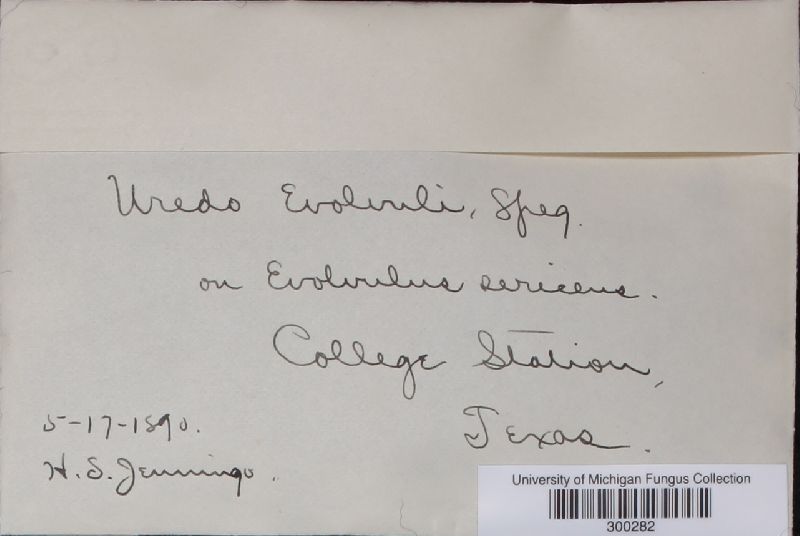 Uredo Evolvuli, Speg.
on Evolvulus sericeus.
College Station,
Texas.
5-17-1890.
H. S. Jennings.
University of Michigan Fungus Collection
300282